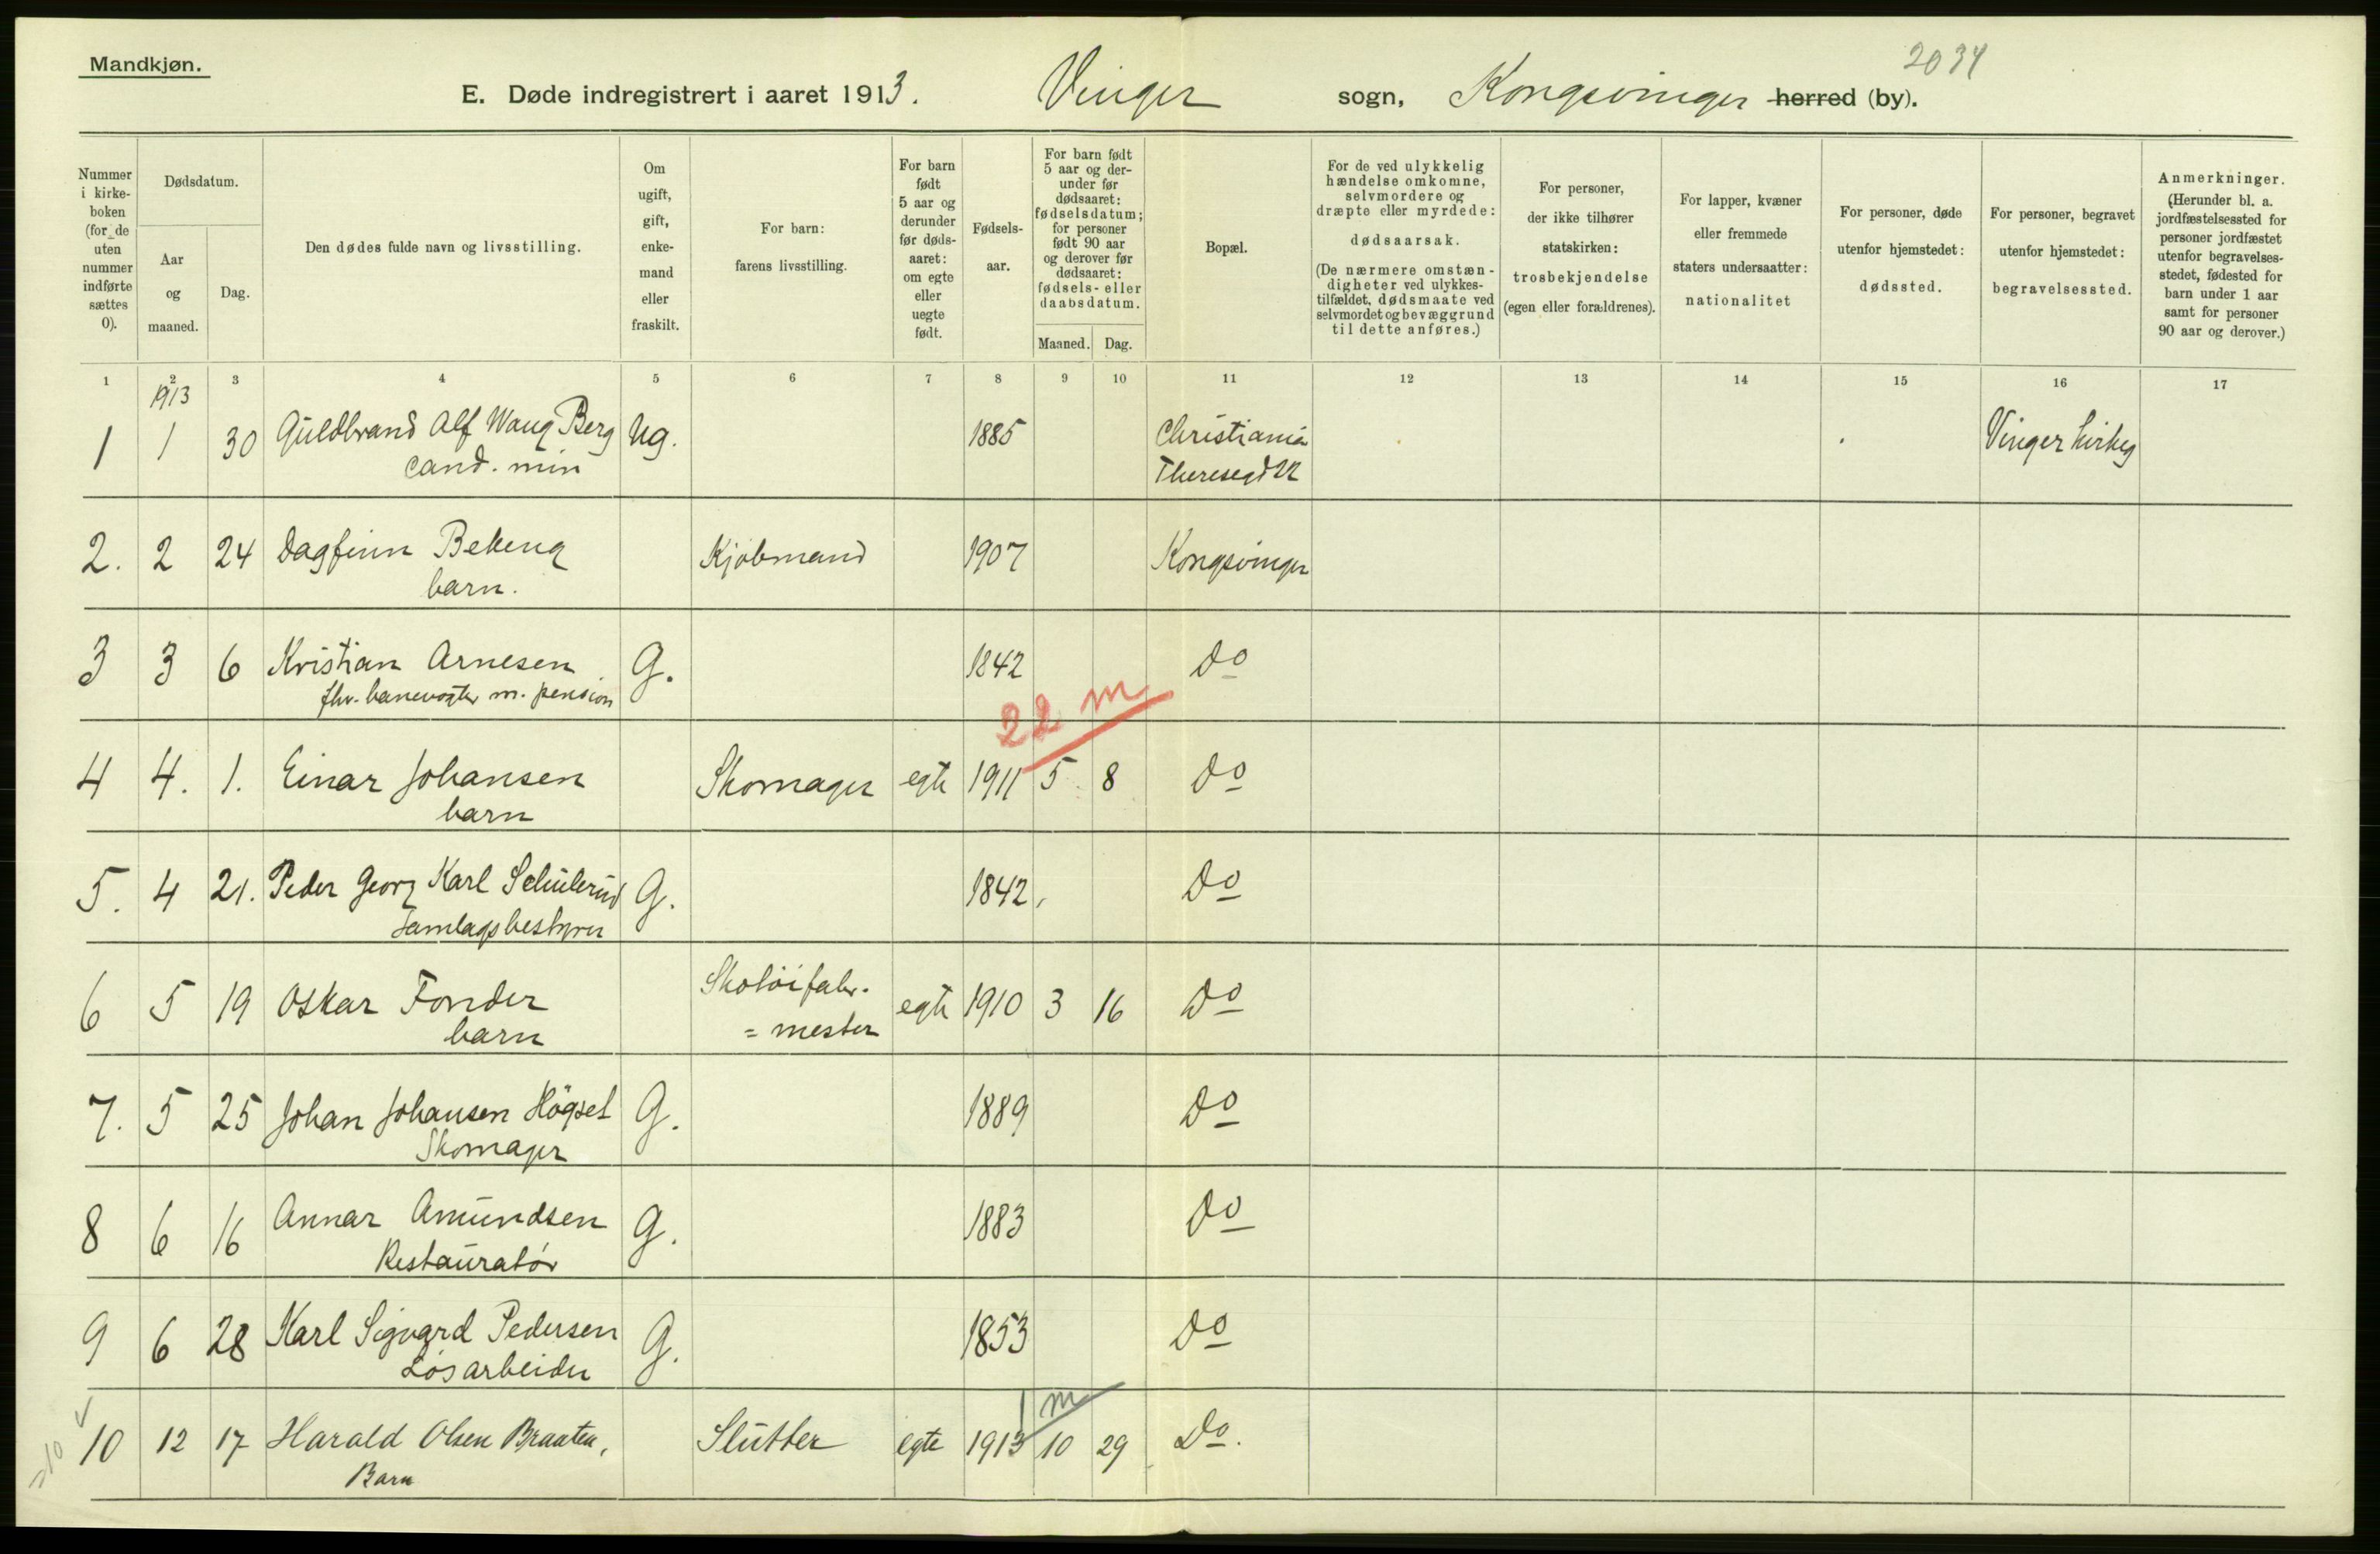 Mandkjøn.
2034
E. Døde indregistrert i aaret 1913. Vinger sogn, Kongsvinger herred (by).
Nummer i kirke-boken (for de uten nummer indførte sættes 0).
Dødsdatum.
Aar og maaned.
Dag.
Den dødes fulde navn og livsstilling.
Om ugift, gift, enke-mand eller fraskilt.
For barn: farens livsstilling.
For barn født 5 aar og derunder før døds-aaret: om egte eller uegte født.
Fødsels-aar.
For barn født 5 aar og der-under før dødsaaret: fødselsdatum; for personer født 90 aar og derover før dødsaaret: fødsels- eller daabsdatum.
Maaned. Dag.
Bopæl.
For de ved ulykkelig hændelse omkomne, selvmordere og dræpte eller myrdede: dødsaarsak. (De nærmere omstæn-digheter ved ulykkes-tilfældet, dødsmaate ved selvmordet og bevæggrund til dette anføres.)
For personer, der ikke tilhører statskirken: trosbekjendelse (egen eller forældrenes).
For lapper, kvæner eller fremmede staters undersaatter: nationalitet
For personer, døde utenfor hjemstedet: dødssted.
For personer, begravet utenfor hjemstedet: begravelsessted.
Anmerkninger. (Herunder bl. a. jordfæstelsessted for personer jordfæstet utenfor begravelses-stedet, fødested for barn under 1 aar samt for personer 90 aar og derover.)
1 2 3 4 5 6 7 8 9 10 11 12 13 14 15 16 17
1913
1 1 30 Guldbrand Alf Wang Berg Ug. 1885 Christiania Vinger kirkeg
cand. min Theresegd 22
2. 2 24 Dagfinn Bekeng Kjøbmand 1907 Kongsvinger
barn.
3 3 6 Kristian Arnesen G. 1842 Do
fhv. banevogter m. pension
22 m
4 4. 1. Einar Johansen Skomager egte 1911 5 8 Do
barn
5. 4 21. Peder Georg Karl Schulerud G. 1842. Do
Samlagsbestyrer
6 5 19 Oskar Fonder Skotøifabr. egte 1910 3 16 Do
barn = mester
7. 5 25 Johan Johansen Høgset G. 1889 Do
Skomager
8 6 16 Annar Amundsen G. 1883 Do
Restauratør
9 6 28 Karl Sigvard Pedersen G. 1853 Do
Løsarbeider
1 m
10 12 17 Harald Olsen Braaten, Slutter egte 1913 10 29 Do.
Barn
=10